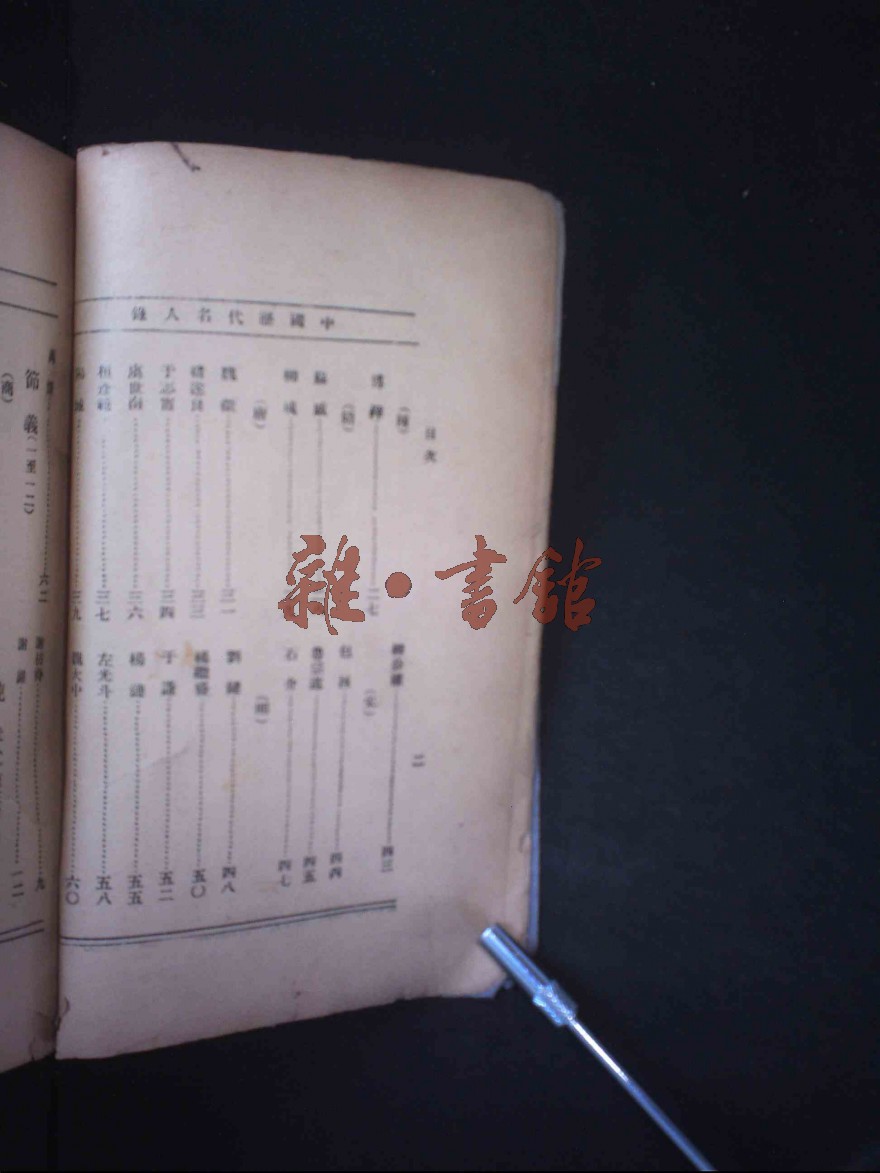 中國歷代名人錄
目次
二
(陳)
傅縡……二七
(隋)
蘇威
柳彧
(唐)
魏徵……三一
褚遂良……三三
于志寧……三四
虞世南……三六
桓彥範……三七
三九
柳公權……四三
(宋)
包拯……四四
魯宗道……四五
石介……四七
(明)
劉健……四八
楊繼盛……五〇
于謙……五二
楊漣……五五
左光斗……五八
魏大中……六〇
六二
節義(一至一二)
(商)
九
一二
雜·書館